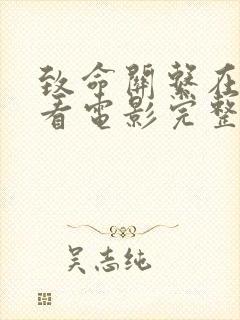 致命開繫在
看電影完整
吴志纯